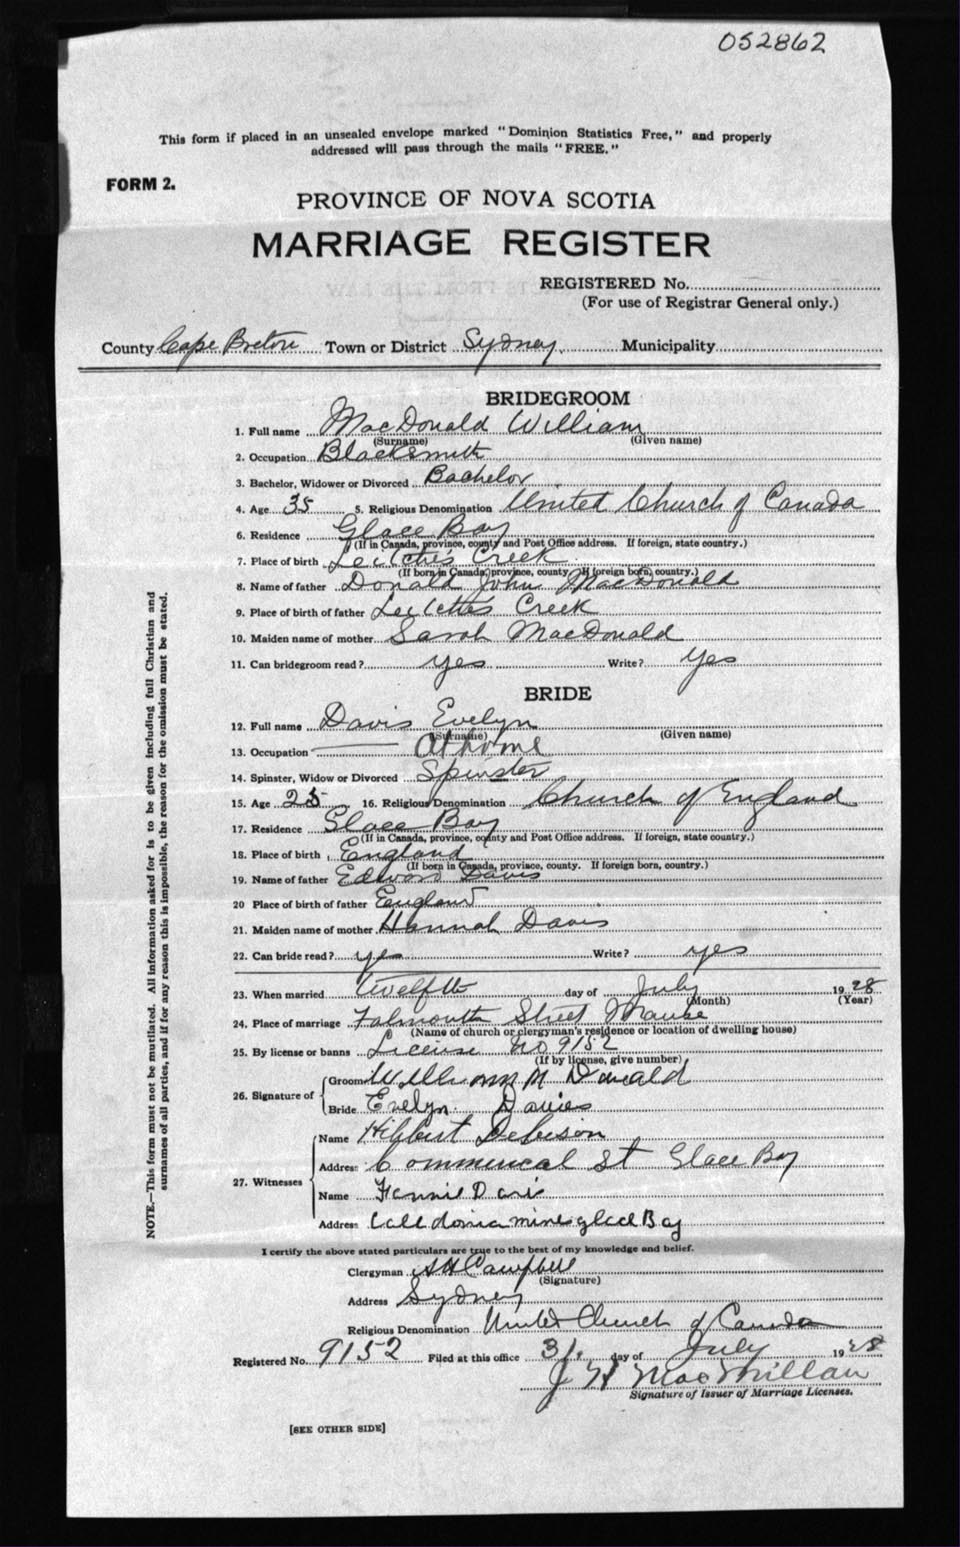 052862
This form if placed in an unsealed envelope marked "Dominion Statistics Free," and properly
addressed will pass through the mails "FREE."
FORM 2.
PROVINCE OF NOVA SCOTIA
MARRIAGE REGISTER
REGISTERED No.
(For use of Registrar General only.)
County Cape Breton Town or District Sydney Municipality
BRIDEGROOM
1. Full name MacDonald William
(Surname) (Given name)
2. Occupation Blacksmith
3. Bachelor, Widower or Divorced Bachelor
4. Age 35 5. Religious Denomination United Church of Canada
6. Residence Glace Bay
(If in Canada, province, county and Post Office address. If foreign, state country.)
7. Place of birth Leitches Creek
(If born in Canada, province, county. If foreign born, country.)
8. Name of father Donald John MacDonald
9. Place of birth of father Leitches Creek
10. Maiden name of mother Sarah MacDonald
11. Can bridegroom read? yes Write? yes
BRIDE
12. Full name Davis Evelyn
(Surname) (Given name)
13. Occupation At home
14. Spinster, Widow or Divorced Spinster
15. Age 25 16. Religious Denomination Church of England
17. Residence Glace Bay
(If in Canada, province, county and Post Office address. If foreign, state country.)
18. Place of birth England
(If born in Canada, province, county. If foreign born, country.)
19. Name of father Edward Davis
20 Place of birth of father England
21. Maiden name of mother Hannah Davis
22. Can bride read? yes Write? yes
23. When married twelfth day of July 1928
(Month) (Year)
24. Place of marriage Falmouth Street Manse
(Name of church or clergyman's residence or location of dwelling house)
25. By license or banns License No 9152
(If by license, give number)
26. Signature of
Groom William McDonald
Bride Evelyn Davies
27. Witnesses
Name Hibbert
Address Commerical St Glace Bay
Name Fannie Davis
Address Caledonia mines glace Bay
I certify the above stated particulars are true to the best of my knowledge and belief.
Clergyman A H Campbell
(Signature)
Address Sydney
Religious Denomination United Church of Canada
Registered No. 9152 Filed at this office 31. day of July 1928
J H MacMillan
Signature of Issuer of Marriage Licenses.
[SEE OTHER SIDE]
NOTE.—This form must not be mutilated. All information asked for is to be given including full Christian and
surnames of all parties, and if for any reason this is impossible, the reason for the omission must be stated.